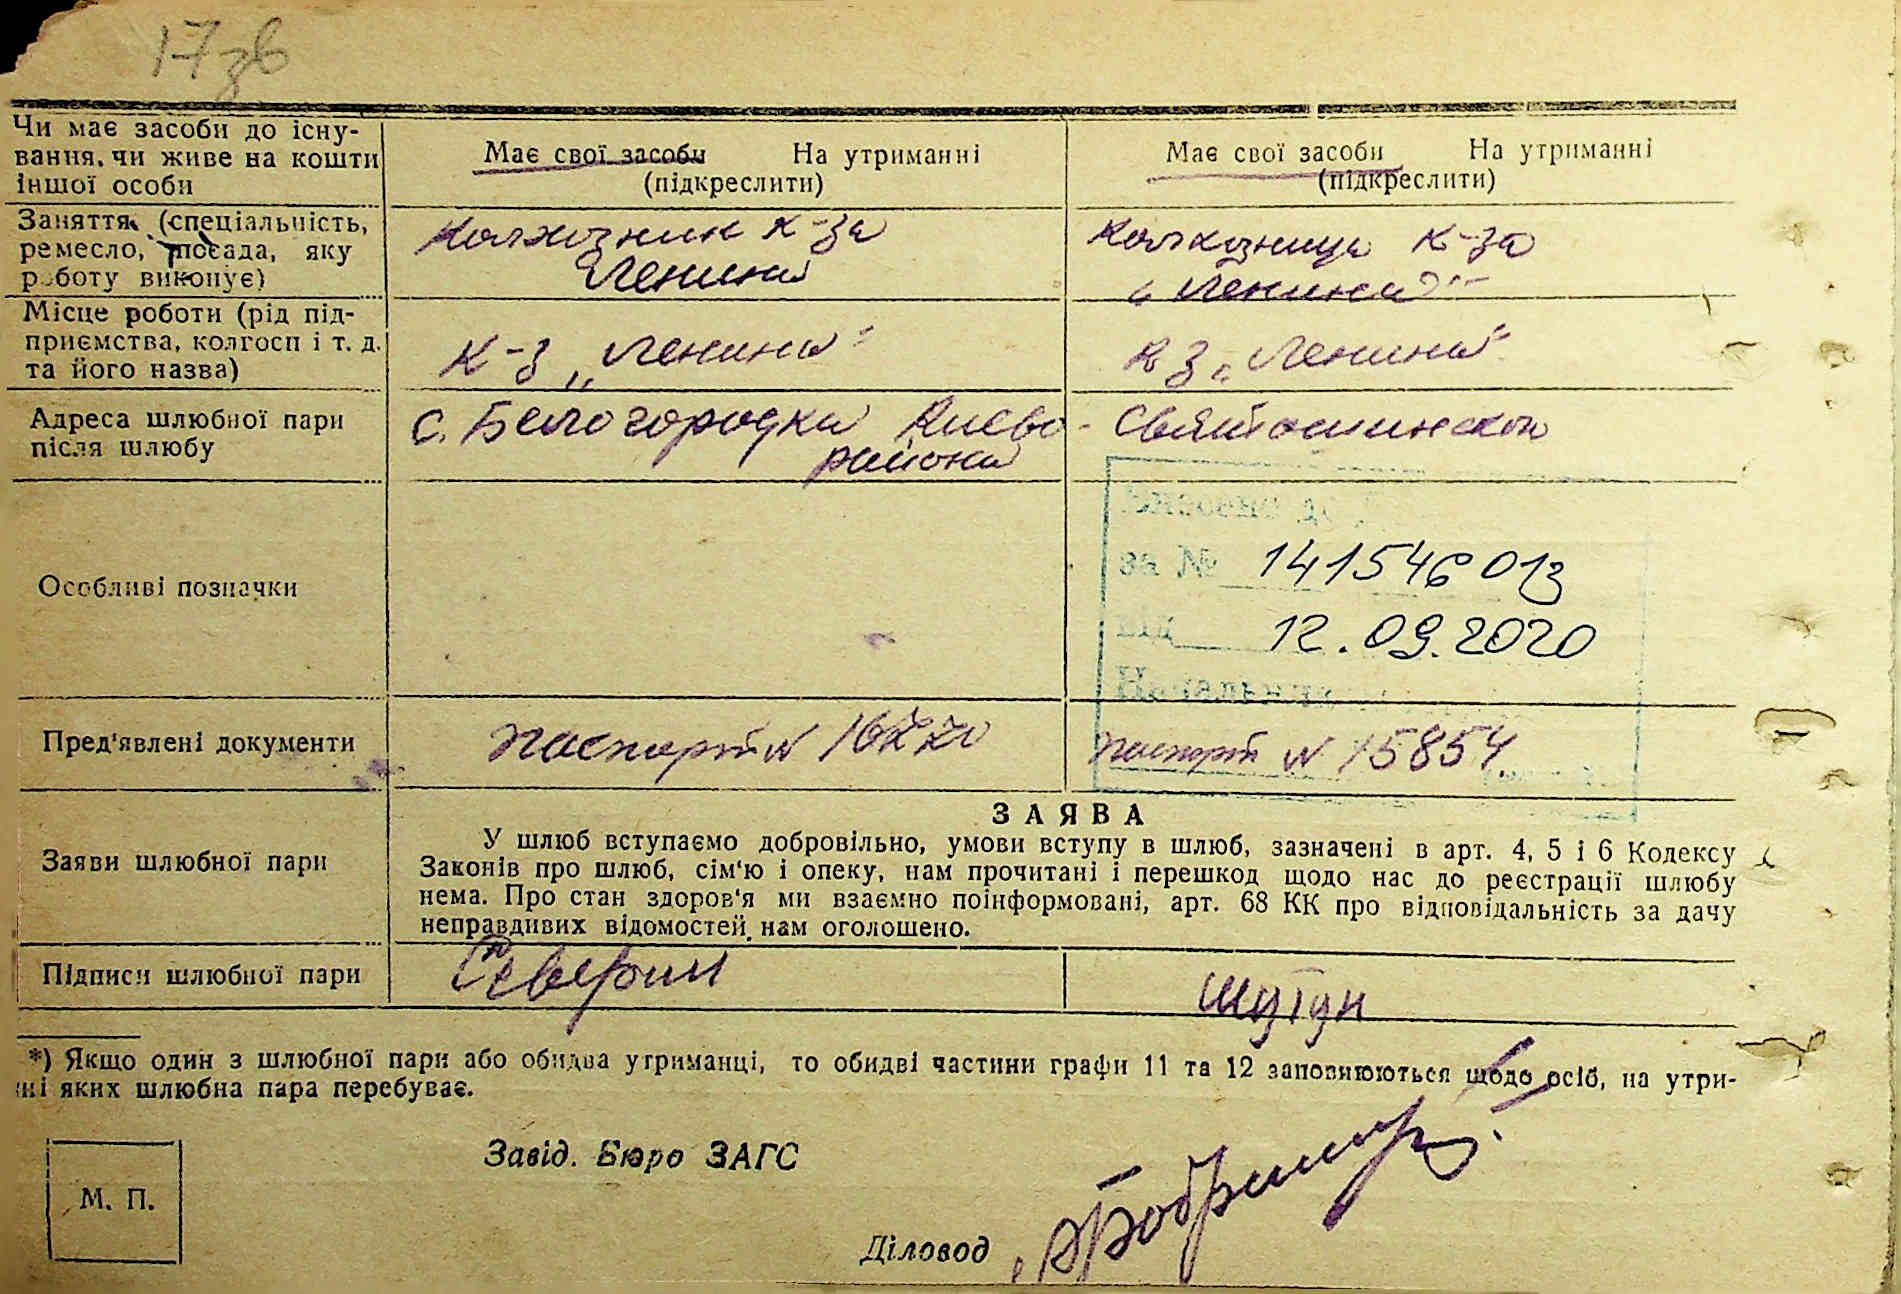 17зв
Чи має засоби до існу-
вання, чи живе на кошти
іншої особи
Має свої засоби На утриманні
(підкреслити)
Має свої засоби На утриманні
(підкреслити)
Заняття (спеціальність,
ремесло, посада, яку
роботу виконує)
Колхозник К-за
Ленина
Колхозница К-за
"Ленина"
Місце роботи (рід під-
приємства, колгосп і т. д.
та його назва)
К-з „Ленина"
К з „Ленина"
Адреса шлюбної пари
після шлюбу
с. Белогородка Киево-Святошинского
района
Особливі позначки
за № 141546 01з
від 12.09.2020
Начальник
Пред'явлені документи
паспорт N
паспорт N 15854
Заяви шлюбної пари
ЗАЯВА
У шлюб вступаємо добровільно, умови вступу в шлюб, зазначені в арт. 4, 5 і 6 Кодексу
Законів про шлюб, сім'ю і опеку, нам прочитані і перешкод щодо нас до реєстрації шлюбу
нема. Про стан здоров'я ми взаємно поінформовані, арт. 68 КК про відповідальність за дачу
неправдивих відомостей нам оголошено.
Підписи шлюбної пари
Северин
Шутун
*) Якщо один з шлюбної пари або обидва утриманці, то обидві частини графи 11 та 12 заповнюються щодо осіб, на утри-
ні яких шлюбна пара перебуває.
Завід. Бюро ЗАГС
М. П.
Діловод